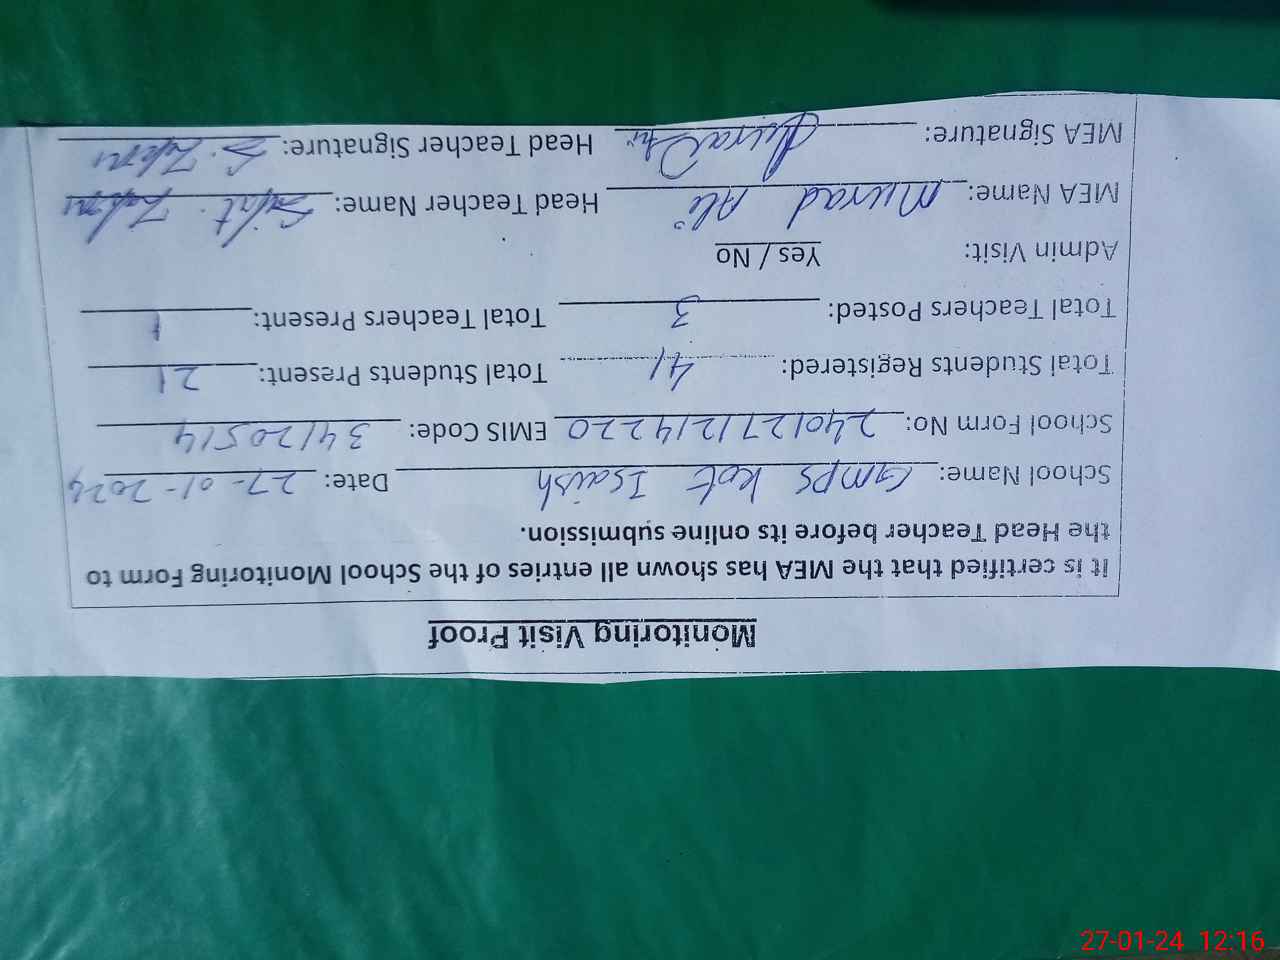 Monitoring Visit Proof
It is certified that the MEA has shown all entries of the School Monitoring Form to
the Head Teacher before its online submission.
School Name: GMPS Kot Isaish Date: 27-01-2024
School Form No: 2401271214220 EMIS Code: 34120514
Total Students Registered: 41 Total Students Present: 21
Total Teachers Posted: 3 Total Teachers Present: 1
Admin Visit: Yes / No
MEA Name: Murad Ali Head Teacher Name:
MEA Signature: Head Teacher Signature:
27-01-24 12:16